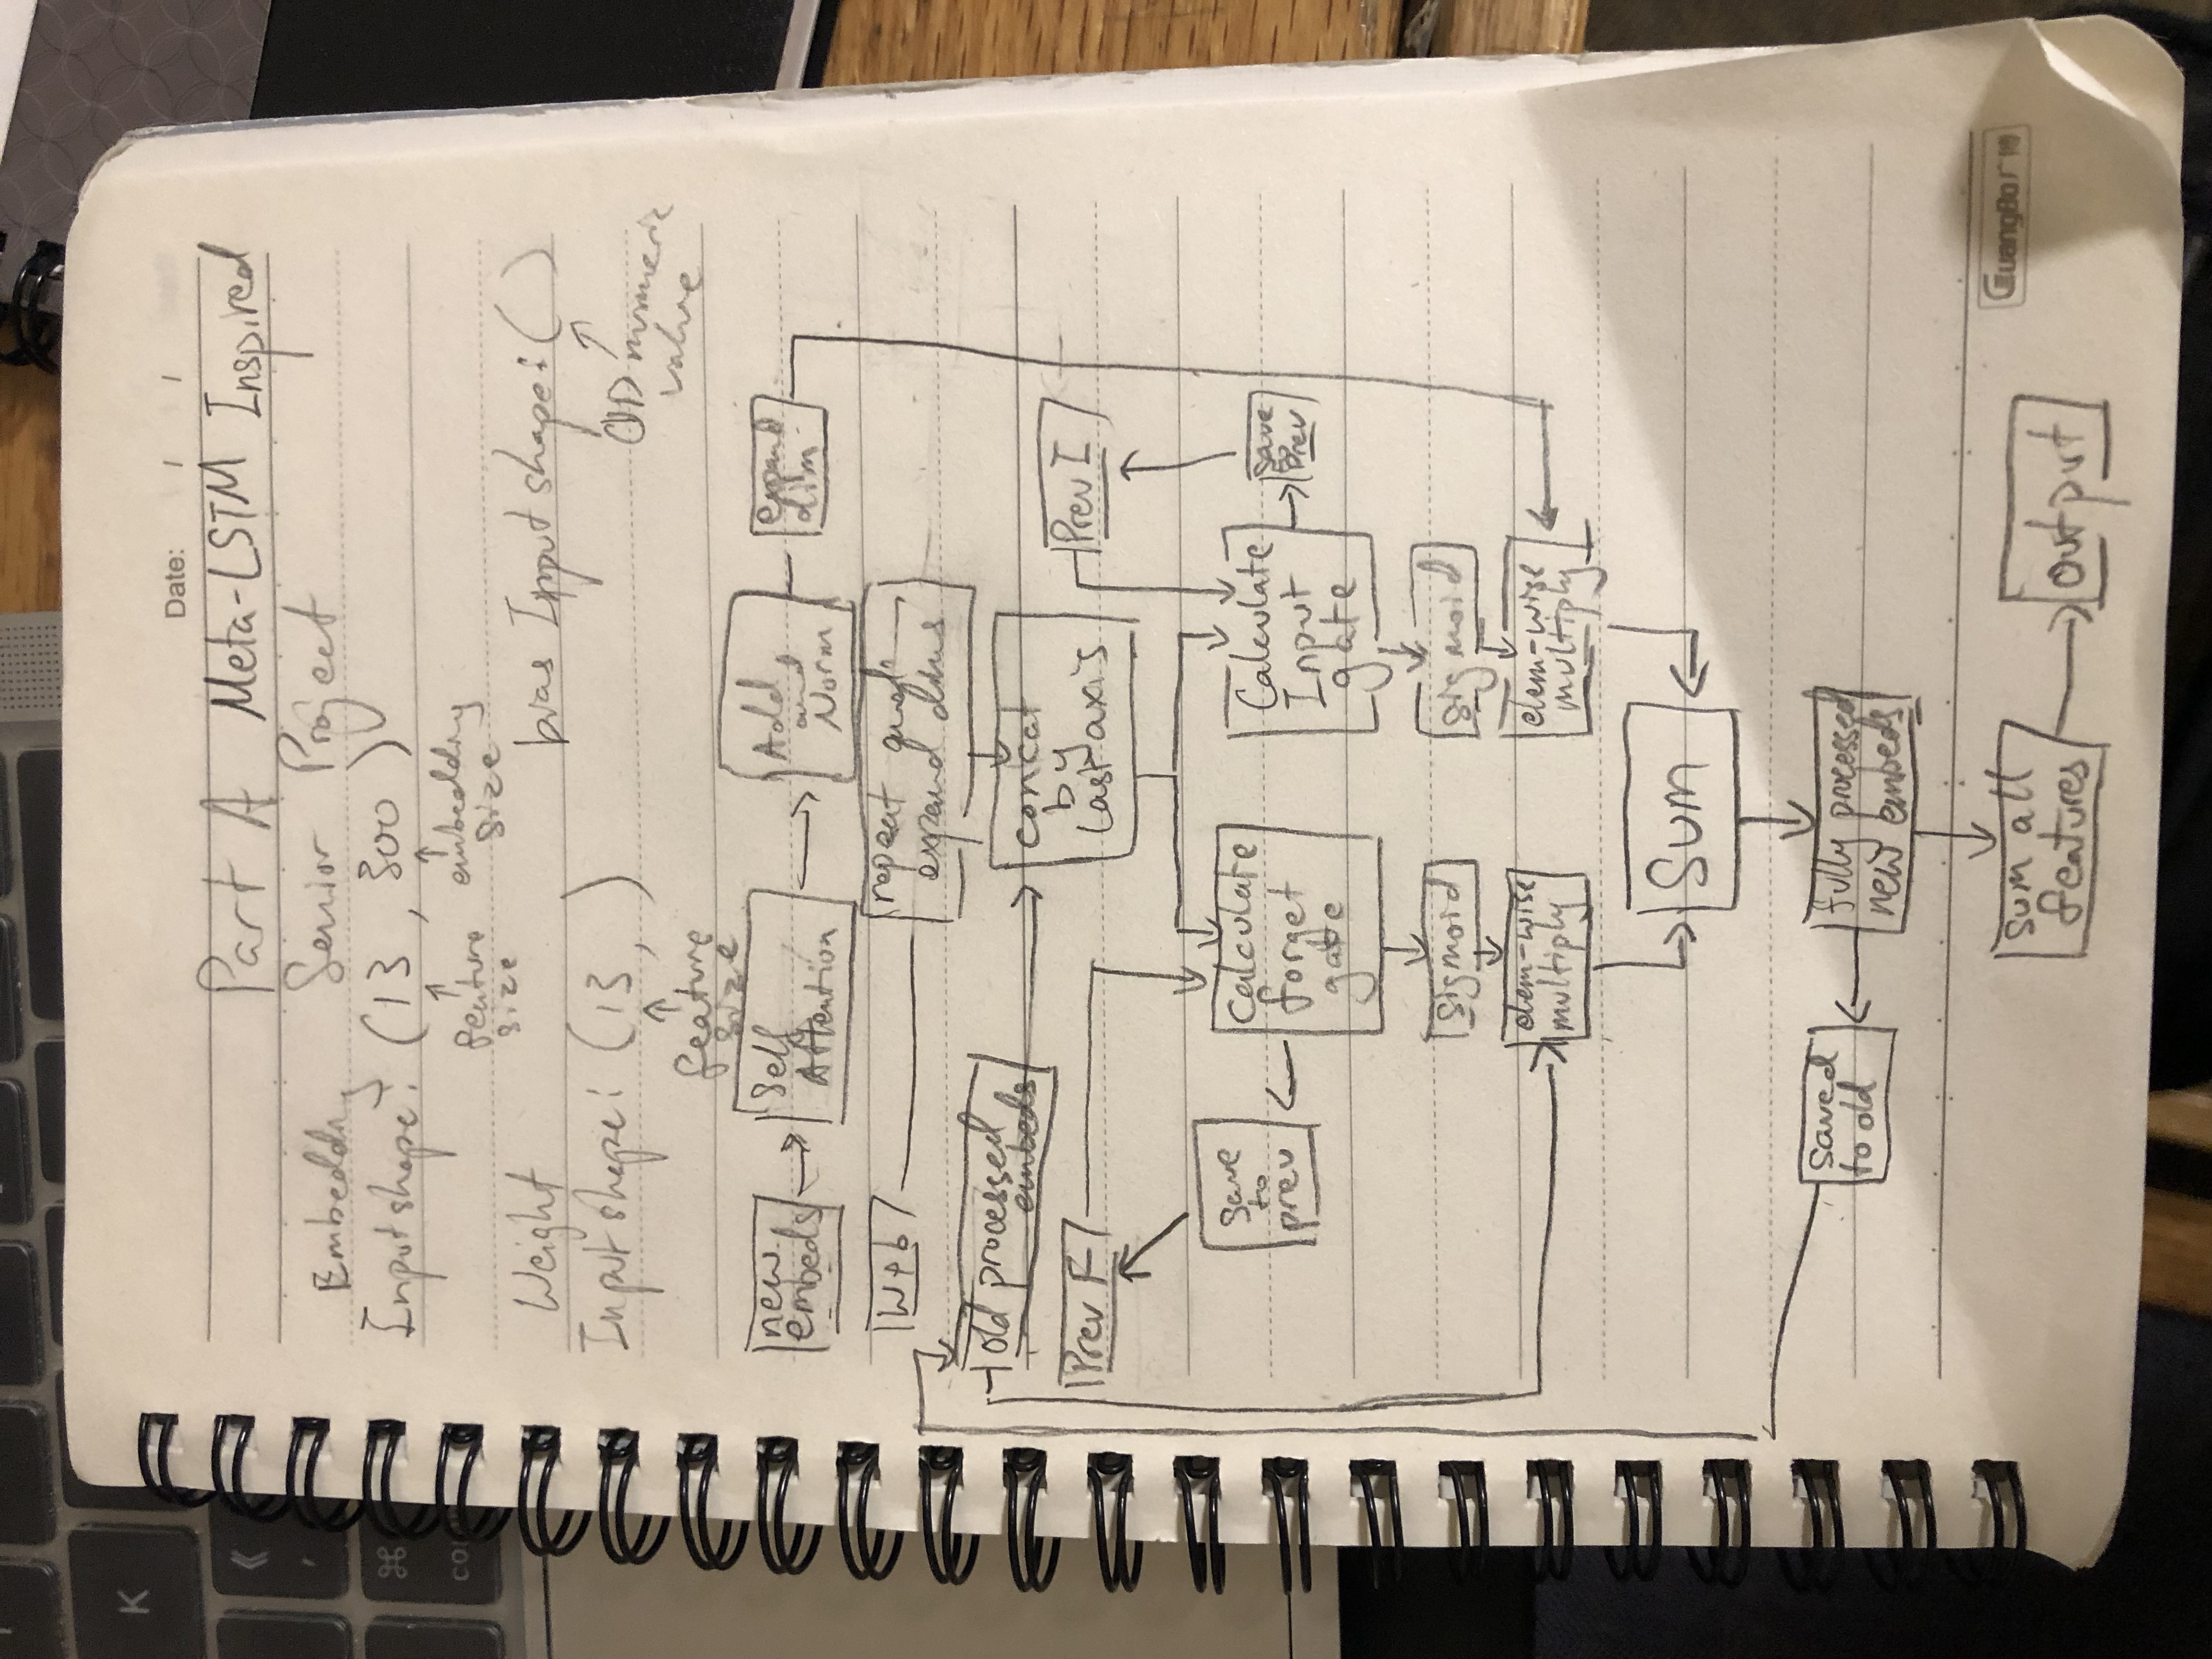 K
⌘
Date: / /
Part A Meta-LSTM Inspired
Senior Project
Embedding
Input shape: (13, 300)
feature
size
embedding
size
Weight
Input shape: (13, )
feature
size
bias Input shape: ()
0D numeric
value
new
embeds
Self
Attention
Add
and
Norm
expand
dim
W+b
repeat and
expand dims
old processed
embeds
concat
by
last axis
Prev F
Prev I
save
to
prev
Calculate
forget
gate
Calculate
Input
gate
save
to
prev
sigmoid
sigmoid
elem-wise
multiply
elem-wise
multiply
Sum
saved
to old
fully processed
new embeds
sum all
features
output
GuangBo